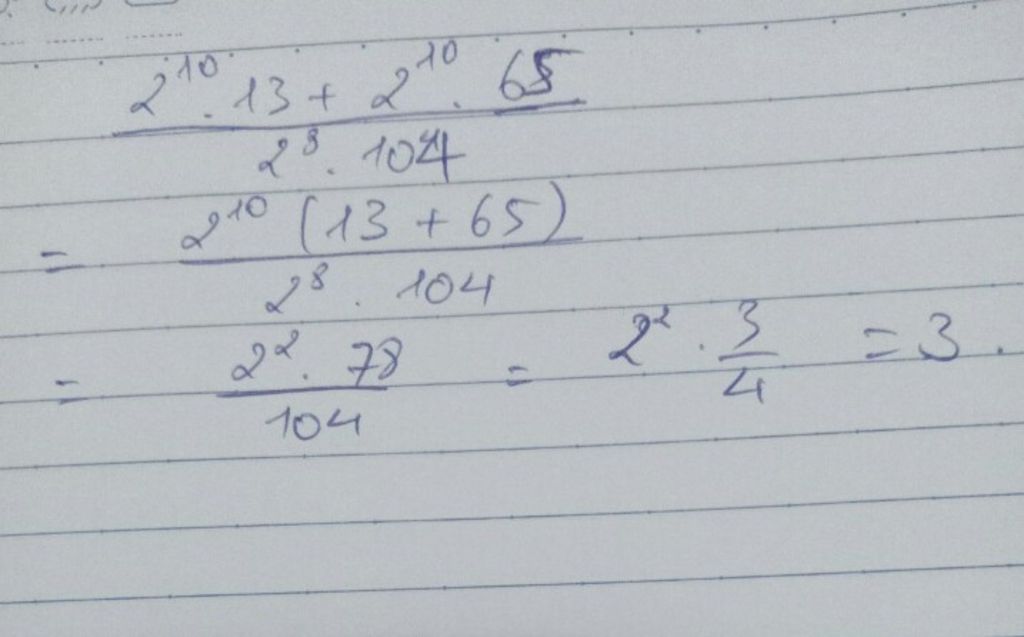 2¹⁰ . 13 + 2¹⁰ . 65
2⁸ . 104
= 2¹⁰ (13 + 65)
2⁸ . 104
= 2² . 78 / 104 = 2² . 3/4 = 3 .